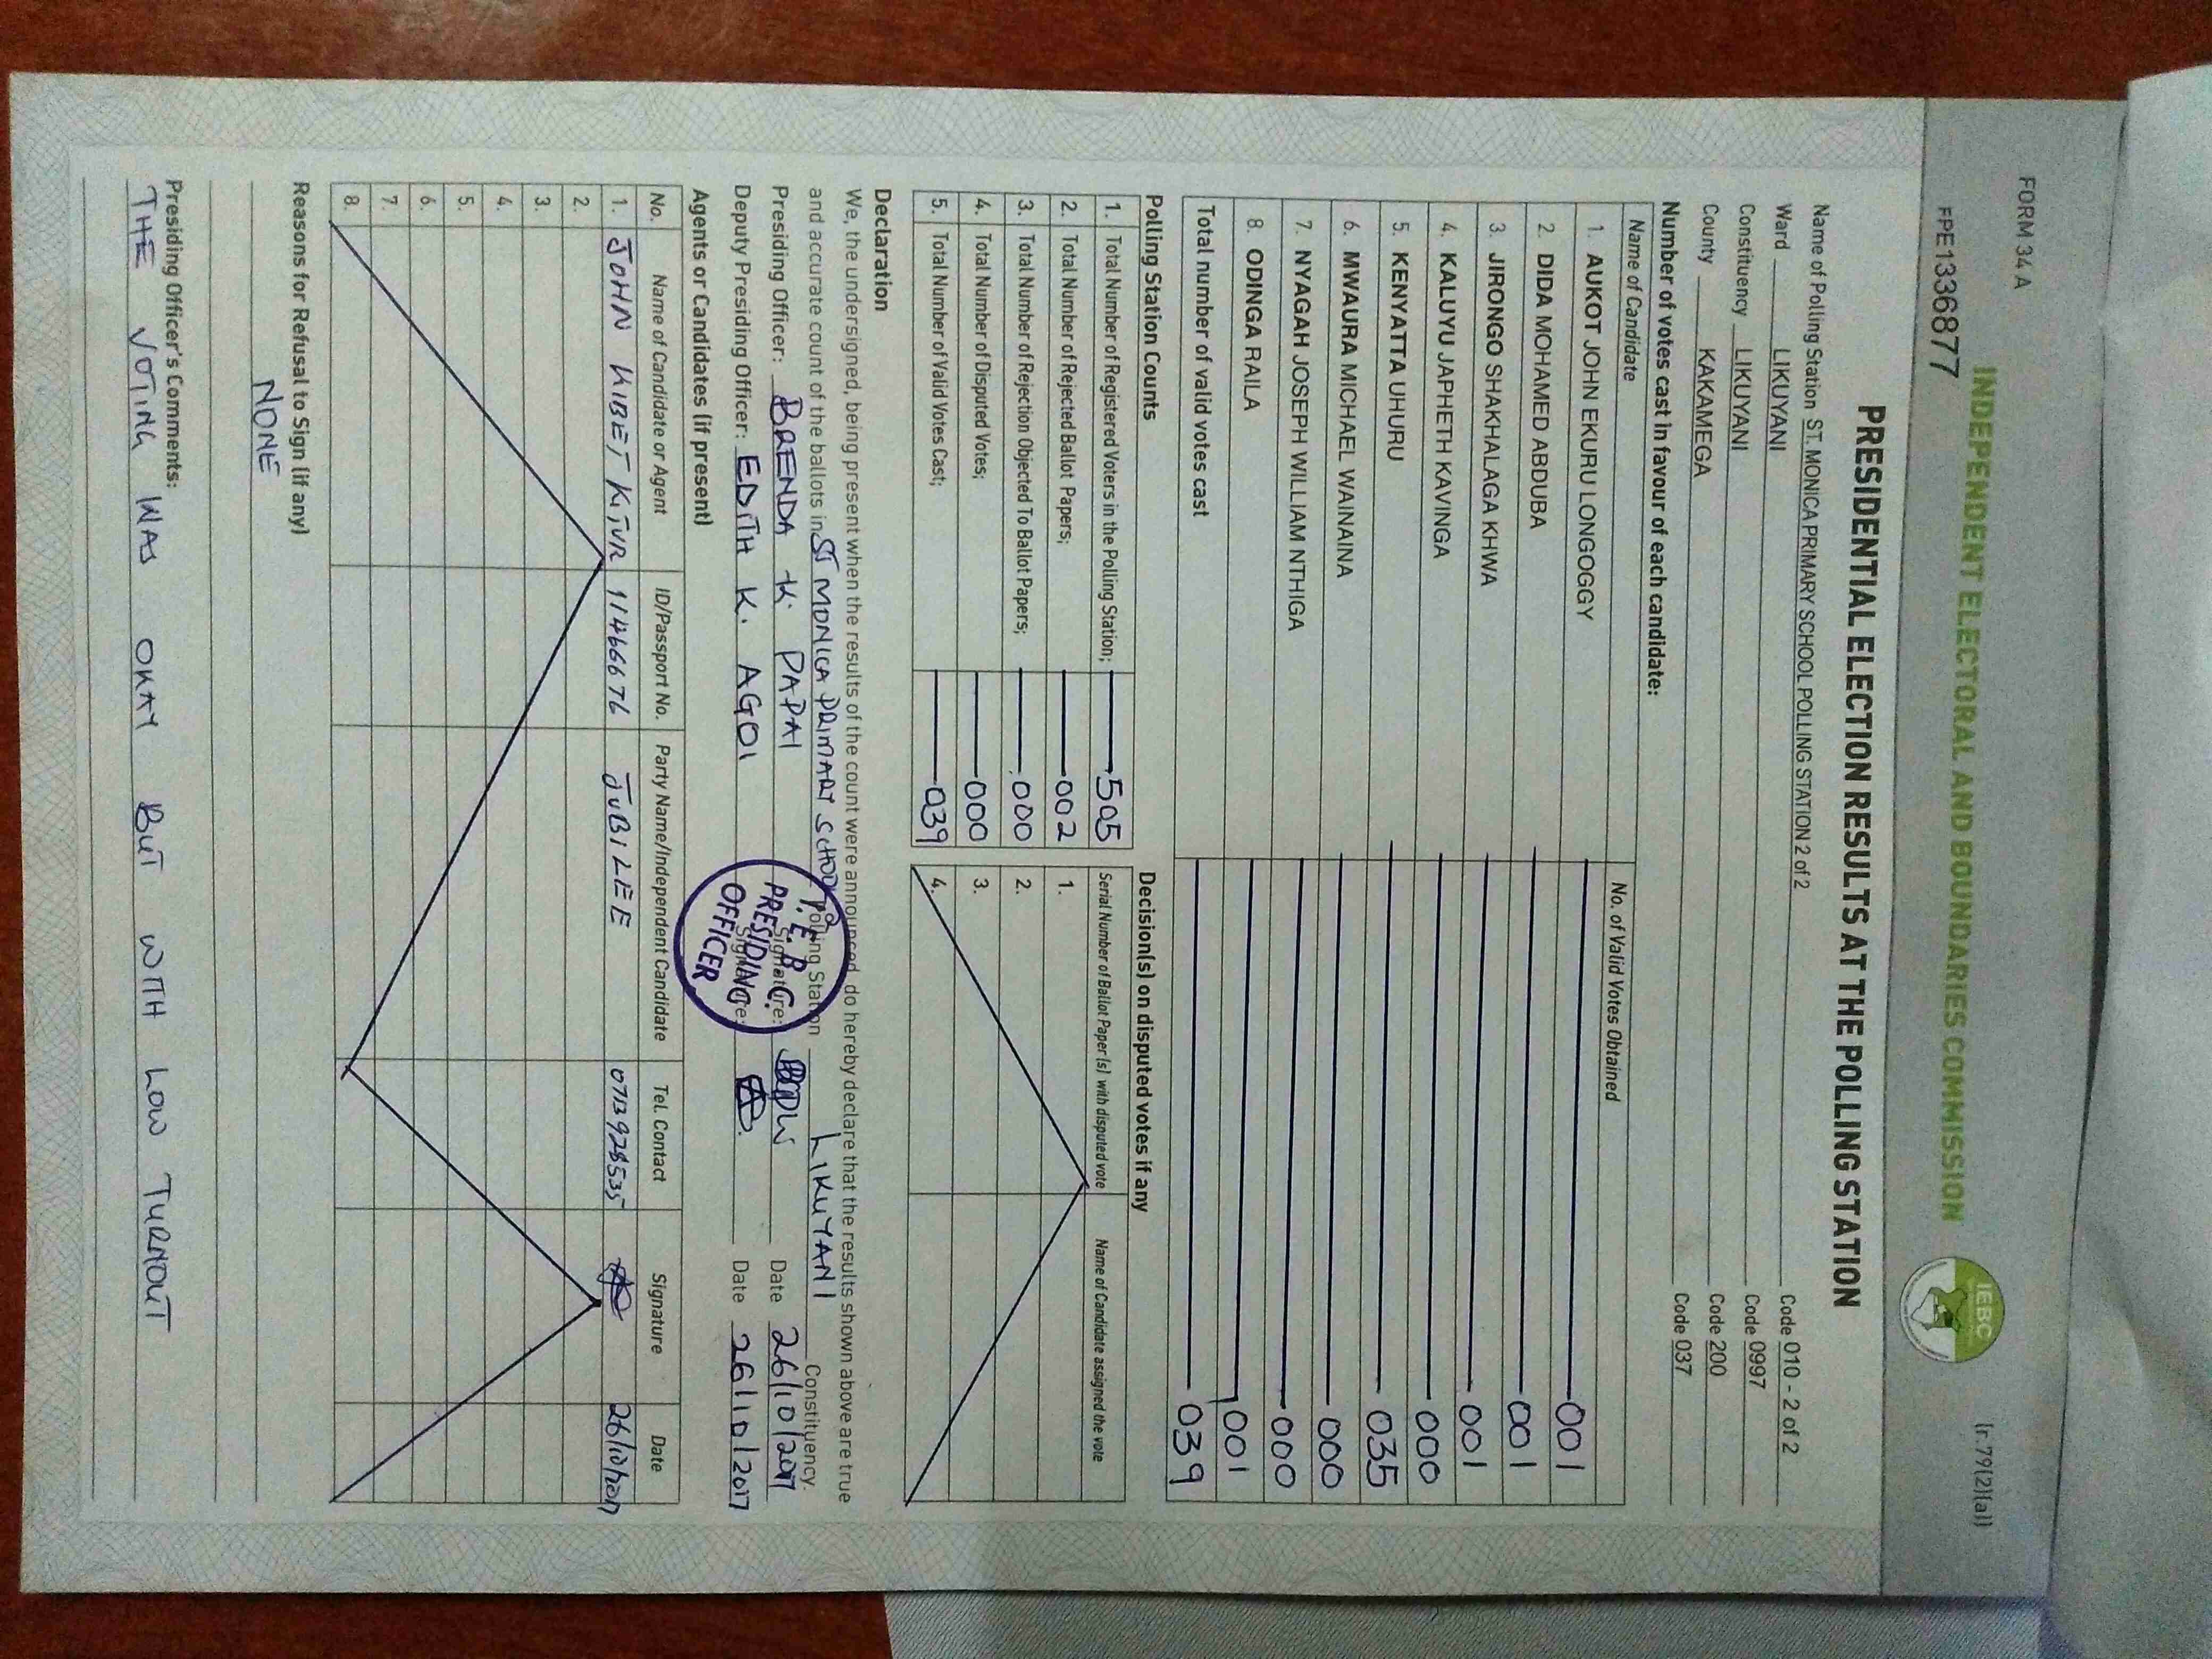 FORM 34 A
(r.79(2)(a))
INDEPENDENT ELECTORAL AND BOUNDARIES COMMISSION
IEBC
FPE1336877
PRESIDENTIAL ELECTION RESULTS AT THE POLLING STATION
Name of Polling Station ST. MONICA PRIMARY SCHOOL POLLING STATION 2 of 2 Code 010 - 2 of 2
Ward LIKUYANI Code 0997
Constituency LIKUYANI Code 200
County KAKAMEGA Code 037
Number of votes cast in favour of each candidate:
Name of Candidate No. of Valid Votes Obtained
1. AUKOT JOHN EKURU LONGOGGY 001
2. DIDA MOHAMED ABDUBA 001
3. JIRONGO SHAKHALAGA KHWA 001
4. KALUYU JAPHETH KAVINGA 000
5. KENYATTA UHURU 035
6. MWAURA MICHAEL WAINAINA 000
7. NYAGAH JOSEPH WILLIAM NTHIGA 000
8. ODINGA RAILA 001
Total number of valid votes cast 039
Polling Station Counts
1. Total Number of Registered Voters in the Polling Station; 505
2. Total Number of Rejected Ballot Papers; 002
3. Total Number of Rejection Objected To Ballot Papers; 000
4. Total Number of Disputed Votes; 000
5. Total Number of Valid Votes Cast; 039
Decision(s) on disputed votes if any
Serial Number of Ballot Paper(s) with disputed vote Name of Candidate assigned the vote
1.
2.
3.
4.
Declaration
We, the undersigned, being present when the results of the count were announced, do hereby declare that the results shown above are true
and accurate count of the ballots in ST MONICA PRIMARY SCHOOL Polling Station LIKUYANI Constituency.
Presiding Officer: BRENDA K. PAPAI Signature: Date 26/10/2017
Deputy Presiding Officer: EDITH K. AGOI Signature: Date 26/10/2017
I.E.B.C.
PRESIDING
OFFICER
Agents or Candidates (if present)
No. Name of Candidate or Agent ID/Passport No. Party Name/Independent Candidate Tel. Contact Signature Date
1. JOHN KIBET KITUR 11466676 JUBILEE 0713928535 26/10/2017
2.
3.
4.
5.
6.
7.
8.
Reasons for Refusal to Sign (if any)
NONE
Presiding Officer's Comments:
THE VOTING WAS OKAY BUT WITH LOW TURNOUT